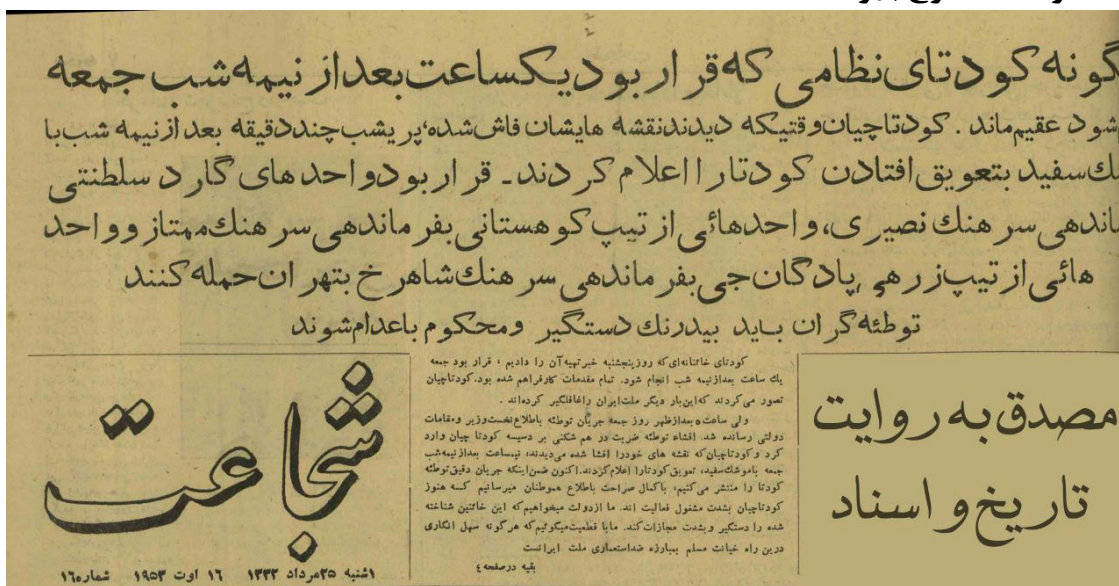 گونه کودتای نظامی که قرار بود یکساعت بعد از نیمه شب جمعه
شود عقیم ماند . کودتاچیان وقتیکه دیدند نقشه هایشان فاش شده، پریشب چند دقیقه بعد از نیمه شب با
شك سفید بتعویق افتادن کودتا را اعلام کردند ـ قرار بود واحدهای گارد سلطنتی
ماندهی سرهنك نصیری، واحدهائی از تیپ کوهستانی بفرماندهی سرهنك ممتاز و واحد
هائی از تیپ زرهی پادگان جی بفرماندهی سرهنك شاهرخ بتهران حمله کنند
توطئه گران باید بیدرنك دستگیر ومحکوم باعدام شوند
مصدق به روایت
تاریخ و اسناد
کودتای خائنانه‌ای که روز پنجشنبه خبر تهیه آن را دادیم ، قرار بود جمعه
یك ساعت بعد از نیمه شب انجام شود. تمام مقدمات کار فراهم شده بود. کودتاچیان
تصور می کردند که این بار دیگر ملت ایران را غافلگیر کرده‌اند .
ولی ساعت ۵ بعدازظهر روز جمعه جریان توطئه باطلاع نخست وزیر ومقامات
دولتی رسانده شد افشاء توطئه ضربت در هم شکنی بر دسیسه کودتا چیان وارد
کرد و کودتاچیان که نقشه های خودرا افشا شده می‌دیدند، نیمساعت بعداز نیمه شب
جمعه با موشك سفید، تعویق کودتا را اعلام کردند. اکنون ضمن اینکه جریان دقیق توطئه
کودتا را منتشر می کنیم، باکمال صراحت باطلاع هموطنان میرسانیم کـه هنوز
کودتاچیان بشدت مشغول فعالیت اند. ما ازدولت میخواهیم که این خائنین شناخته
شده را دستگیر و بشدت مجازات کند. ما با قطعیت میگوئیم که هر گونه سهل انگاری
درین راه خیانت مسلم بمبارزه ضداستعماری ملت ایرانست
بقیه در صفحه ٤
شجاعت
۱شنبه ۲۵ مرداد ۱۳۳۲ ۱۶ اوت ۱۹۵۳ شماره ۱۶